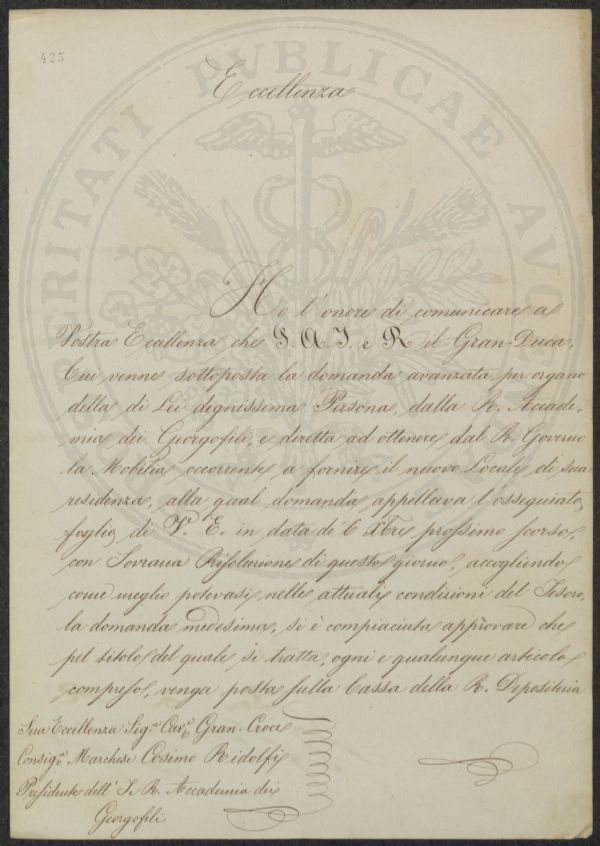 425
Eccellenza
Ho l'onore di comunicare a
Vostra Eccellenza che S. A. I. e R. il Gran-Duca,
Cui venne sottoposta la domanda avanzata, per organo
della di Lei degnissima Persona, dalla R. Accade-
mia dei Georgofili, e diretta ad ottenere dal R. Governo
la Mobilia occorrente a fornire il nuovo Locale di sua
residenza, alla qual domanda appellava l'ossequiato
foglio di V. E. in data di 6 Xbre prossimo scorso,
con Sovrana Risoluzione di questo giorno, accogliendo
come meglio potevasi nelle attuali condizioni del Tesoro,
la domanda medesima, si è compiaciuta approvare che
pel titolo del quale si tratta, ogni e qualunque articolo
compreso, venga posta sulla Cassa della R. Depositeria
Sua Eccellenza Sigre Cave Gran-Croce
Consigre Marchese Cosimo Ridolfi
Presidente dell'I. R. Accademia dei
Georgofili
PROSPERITATI PUBLICAE AUGENDAE